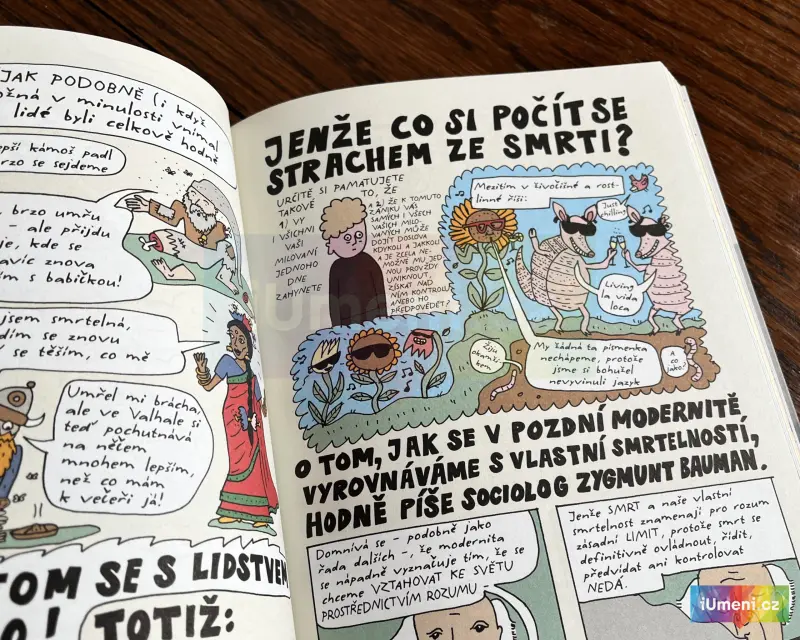 JAK PODOBNĚ (i když
v minulosti vnímal
lidé byli celkově hodně
kámoš padl
brzo se sejdeme
brzo umřu
- ale přijdu
kde se
znova
s babičkou!
jsem smrtelná,
se znovu
se těším, co mě
Umřel mi brácha,
ale ve Valhale si
teď pochutnává
na něčem
mnohem lepším,
než co mám
k večeři já!
TOM SE S LIDSTVEM
TOTIŽ:
JENŽE CO SI POČÍT SE
STRACHEM ZE SMRTI?
URČITĚ SI PAMATUJETE
TAKOVÉ TO, ŽE
1) VY
I VŠICHNI
VAŠI
MILOVANÍ
JEDNOHO
DNE
ZAHYNETE
A 2) ŽE K TOMUTO
ZÁNIKU VÁS
SAMÍCH I VŠECH
VAŠICH MILO-
VANÝCH MŮŽE
DOJÍT DOSLOVA
KDYKOLI A JAKKOLI
A JE ZCELA NE-
MOŽNÉ MU JED-
NOU PROVŽDY
UNIKNOUT,
ZÍSKAT NAD
NÍM KONTROLU
ANEBO HO
PŘEDPOVĚDĚT?
Mezitím v živočišné a rost-
linné říši:
Just
chilling
Living
la vida
loca
Žiju
okamži-
kem
My žádná ta písmenka
nechápeme, protože
jsme si bohužel
nevyvinuli jazyk
A co
jako?
O TOM, JAK SE V POZDNÍ MODERNITĚ
VYROVNÁVÁME S VLASTNÍ SMRTELNOSTÍ,
HODNĚ PÍŠE SOCIOLOG ZYGMUNT BAUMAN.
Domnívá se - podobně jako
řada dalších -, že modernita
se nápadně vyznačuje tím, že se
chceme VZTAHOVAT KE SVĚTU
PROSTŘEDNICTVÍM ROZUMU -
Jenže SMRT a naše vlastní
smrtelnost znamenají pro rozum
zásadní LIMIT, protože smrt se
definitivně ovládnout, řídit,
předvídat ani kontrolovat
NEDÁ.
iUmeni
iUmeni.cz